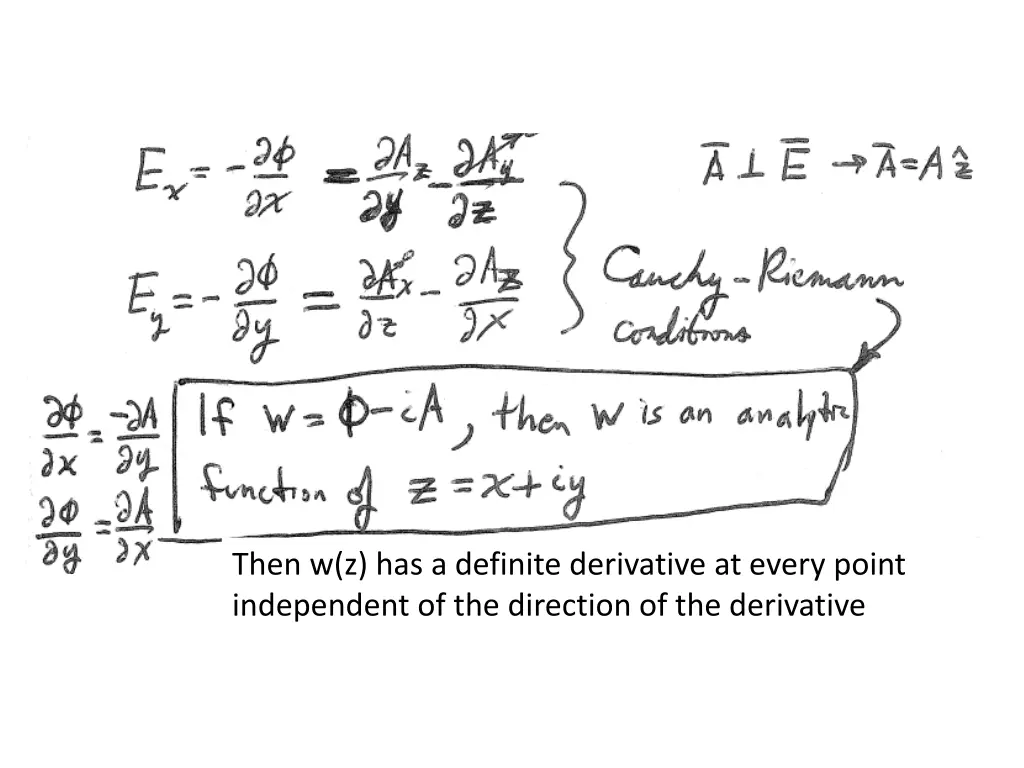 E_x = -∂ϕ/∂x = ∂A_z/∂y - ∂A_y/∂z
A̅ ⊥ E̅ → A̅ = A ẑ
E_y = -∂ϕ/∂y = ∂A_x/∂z - ∂A_z/∂x
Cauchy-Riemann
conditions
∂ϕ/∂x = -∂A/∂y
∂ϕ/∂y = ∂A/∂x
If w = ϕ-iA, then w is an analytic
function of z = x+iy
Then w(z) has a definite derivative at every point
independent of the direction of the derivative